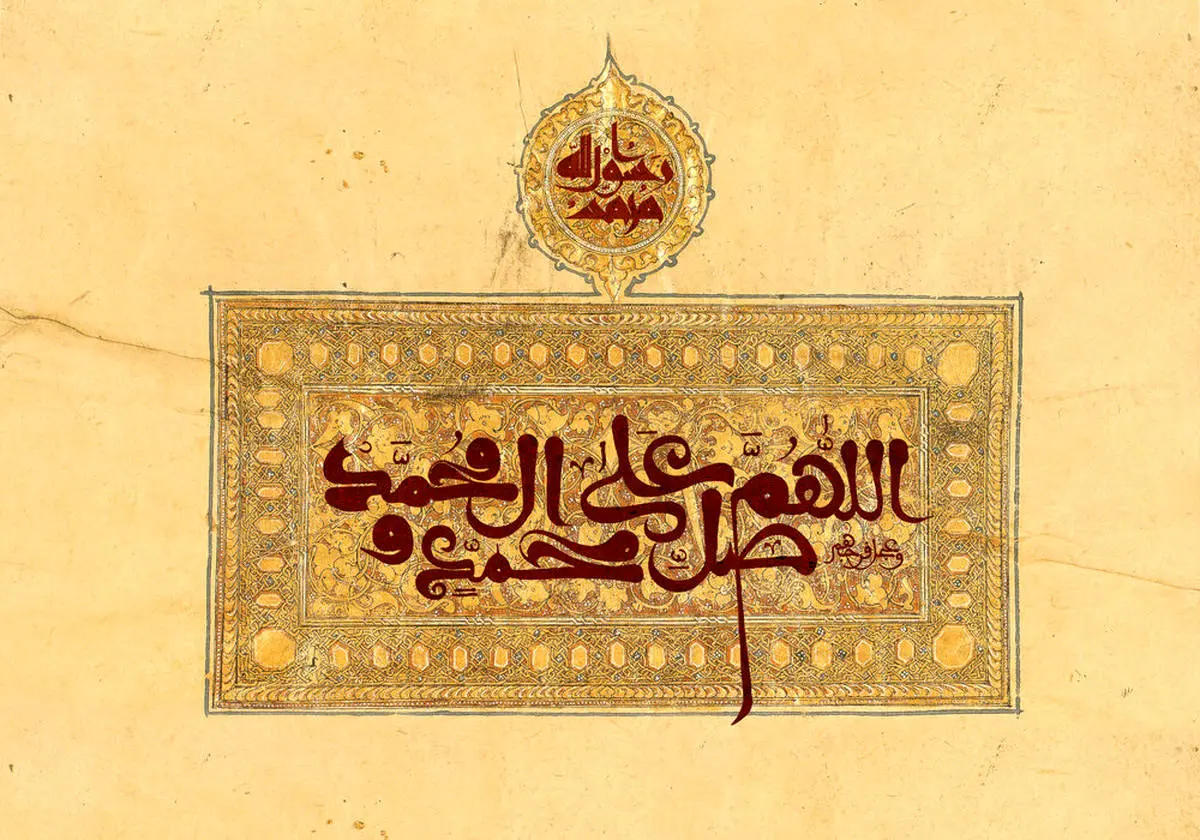 رسول الله
محمد
اللّهُمَّ صَلِّ عَلى مُحَمَّدٍ و آل مُحَمَّد
و عجل فرجهم